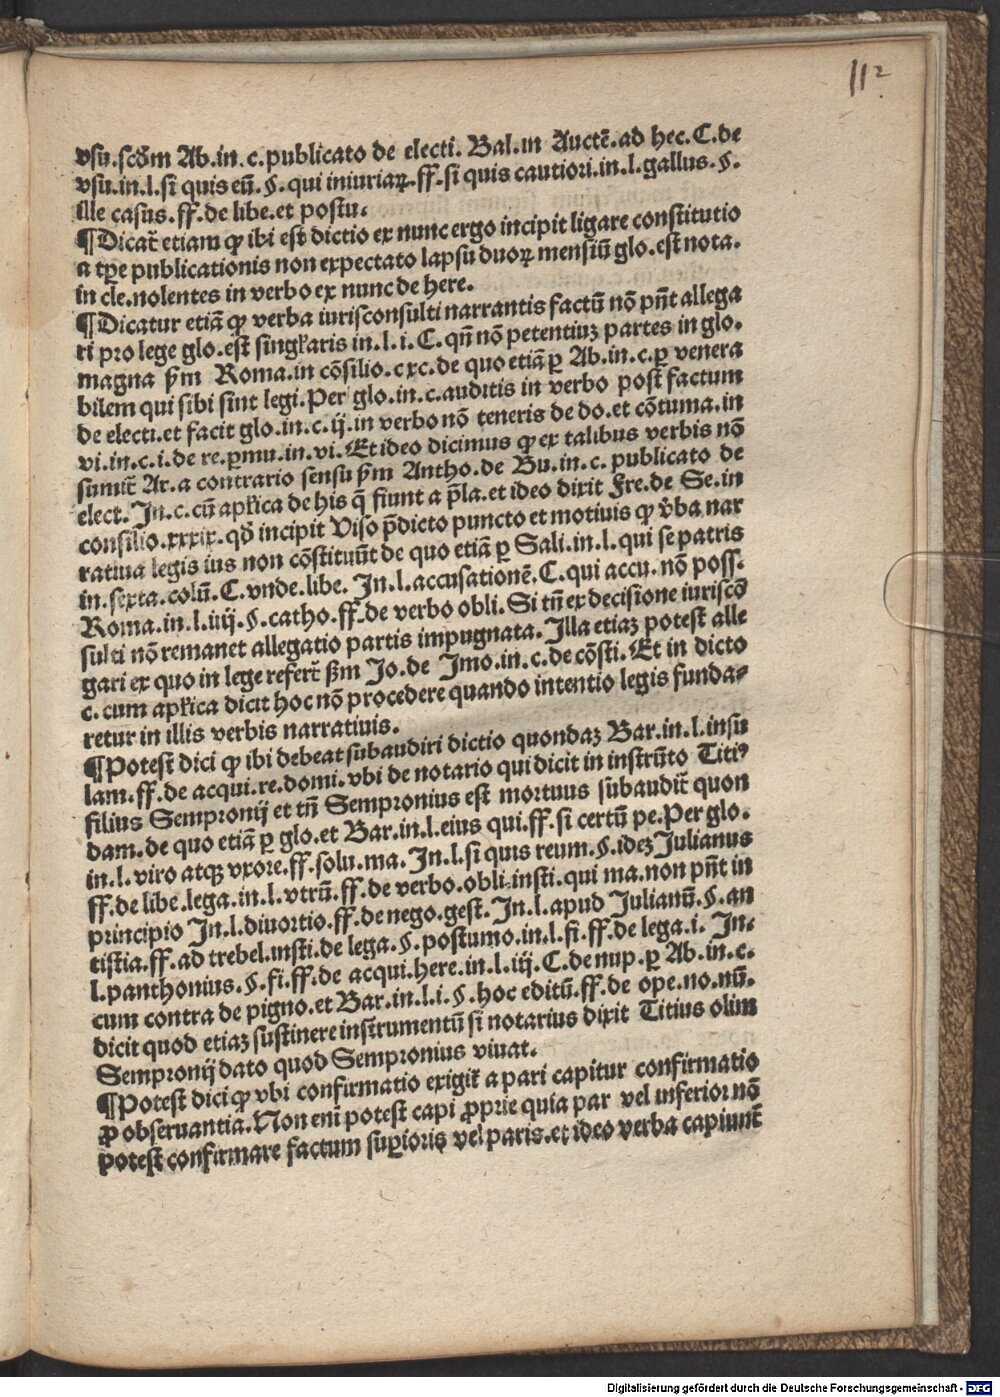 112
vsu.scdm Ab.in.c.publicato de electi. Bal.in Auctē.ad hec.C.de
vsu.in.l.si quis eū.§.qui iniuriaꝝ.ff.si quis cautiori.in.l.gallus.§.
ille casus.ff.de libe.et postu.
¶Dicat̄ etiam ꝙ ibi est dictio ex nunc ergo incipit ligare constitutio
a tꝑe publicationis non expectato lapsu duoꝝ mensiū glo.est nota.
in cle.nolentes in verbo ex nunc de here.
¶Dicatur etiā ꝙ verba iurisconsulti narrantis factū nō pn̄t allega
ri pro lege glo.est singl'aris in.l.i.C.qn̄ nō petentiuꝫ partes in glo.
magna ẜm Roma.in cōsilio.cxc.de quo etiā ꝑ Ab.in.c.ꝑ venera
bilem qui sibi sint legi.Per glo.in.c.auditis in verbo post factum
de electi.et facit glo.in.c.ij.in verbo nō teneris de do.et cōtuma.in
vi.in.c.i.de re.ꝑmu.in.vi.Et ideo dicimus ꝙ ex talibus verbis nō
sumit̄ Ar.a contrario sensu ẜm Antho.de Bu.in.c.publicato de
elect.In.c.cū apl'ica de his q̄ fiunt a p̄la.et ideo dixit Fre.de Se.in
consilio.xxxix.qd̄ incipit Viso p̄dicto puncto et motiuis ꝙ v̄ba nar
ratiua legis ius non cōstituūt de quo etiā ꝑ Sali.in.l.qui se patris
in.sexta.colū.C.vnde.libe. In.l.accusationē.C.qui accu.nō poss.
Roma.in.l.iiij.§.catho.ff.de verbo obli.Si tn̄ ex decisione iuriscō
sulti nō remanet allegatio partis impugnata.Illa etiaꝫ potest alle
gari ex quo in lege refert̄ ẜm Jo.de Imo.in.c.de cōsti.Et in dicto
c.cum apl'ica dicit hoc nō procedere quando intentio legis funda-
retur in illis verbis narratiuis.
¶Potest dici ꝙ ibi debeat subaudiri dictio quondaꝫ Bar.in.l.insu
lam.ff.de acqui.re.domi.vbi de notario qui dicit in instrūto Titiꝰ
filius Sempronij et tn̄ Sempronius est mortuus subaudit̄ quon
dam.de quo etiā ꝑ glo.et Bar.in.l.eius qui.ff.si certū pe.Per glo.
in.l.viro atqꝫ vxore.ff.solu.ma.In.l.si quis reum.§.ideꝫ Julianus
ff.de libe.lega.in.l.vtrū.ff.de verbo.obli.insti.qui ma.non pn̄t in
principio In.l.diuortio.ff.de nego.gest.In.l.apud Julianū.§.an
tistia.ff.ad trebel.insti.de lega.§.postumo.in.l.fi.ff.de lega.i. In.
l.panthonius.§.fi.ff.de acqui.here.in.l.iij.C.de nup.ꝑ Ab.in.c.
cum contra de pigno.et Bar.in.l.i.§.hoc editū.ff.de ope.no.nū.
dicit quod etiaꝫ sustinere instrumentū si notarius dixit Titius olim
Sempronij dato quod Sempronius viuat.
¶Potest dici ꝙ vbi confirmatio exigit̄ a pari capitur confirmatio
ꝓ obseruantia.Non eni potest capi ꝓprie quia par vel inferior nō
potest confirmare factum suꝑioris vel paris.et ideo verba capiunt̄
Digitalisierung gefördert durch die Deutsche Forschungsgemeinschaft - DFG